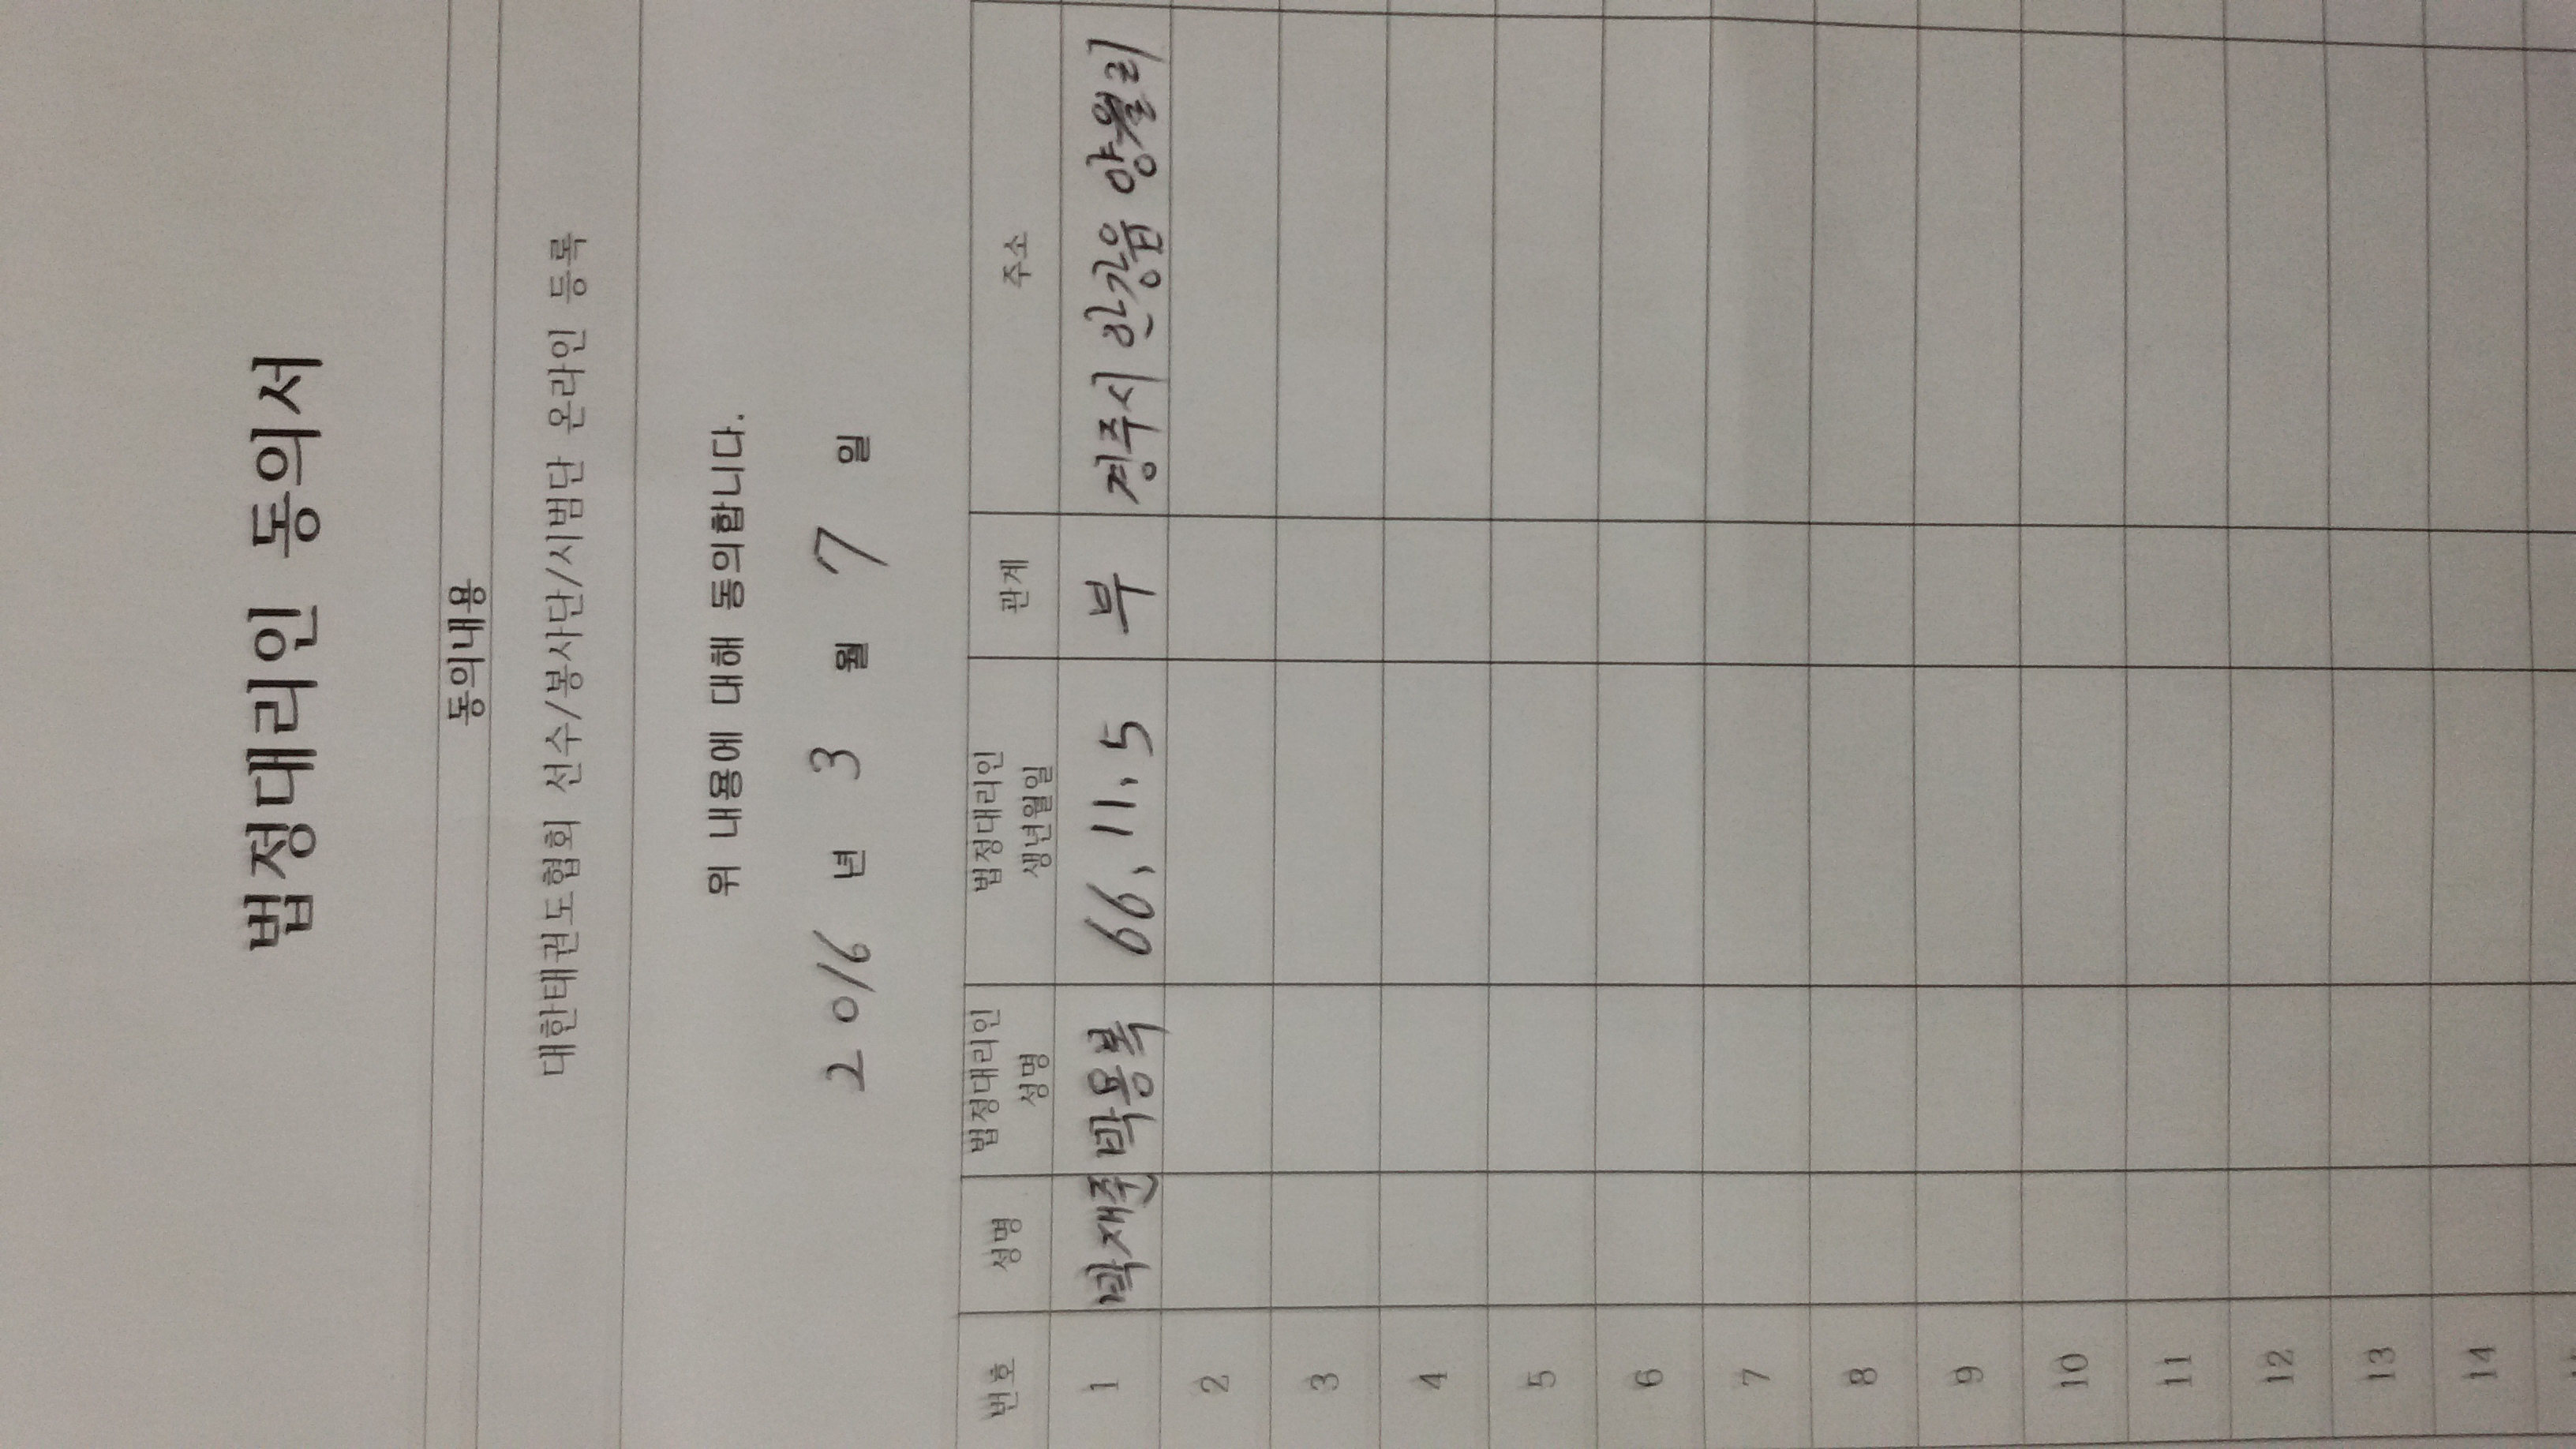 법정대리인 동의서
동의내용
대한태권도협회 선수/봉사단/시범단 온라인 등록
위 내용에 대해 동의합니다.
2016 년 3 월 7 일
번호 성명 법정대리인 성명 법정대리인 생년월일 관계 주소
1 박재준 박용복 66, 11, 5 부 경주시 안강읍 양월리
2
3
4
5
6
7
8
9
10
11
12
13
14